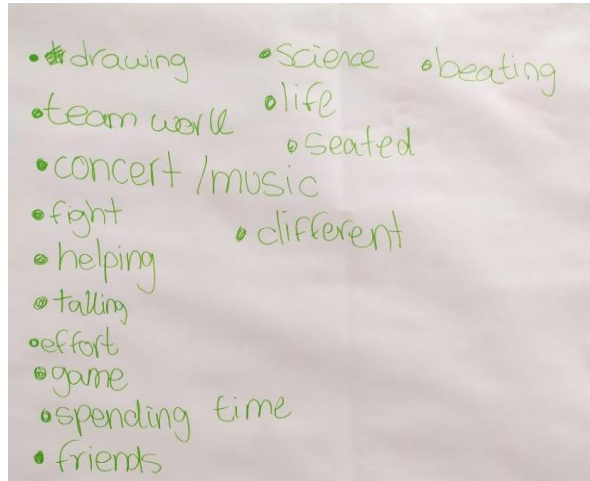 • drawing
• team work
• concert / music
• fight
• helping
• talking
• effort
• game
• spending time
• friends
• science
• life
• seated
• different
• beating